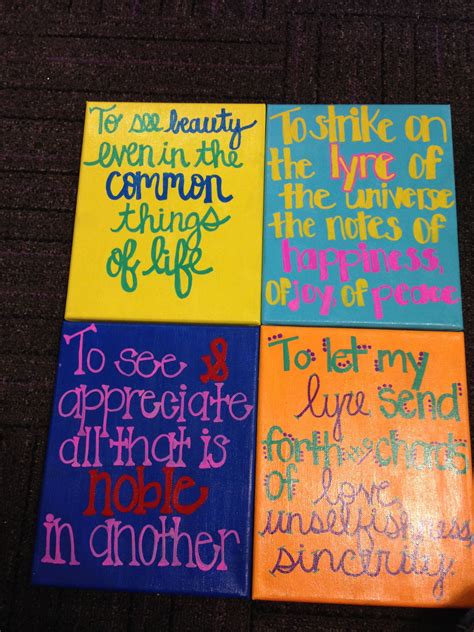 To see beauty
even in the
common
things
of life
To strike on
the lyre of
the universe
the notes of
happiness,
of joy, of peace
To see &
appreciate
all that is
noble
in another
To let my
lyre send
forth chords
of love,
unselfishness,
sincerity.